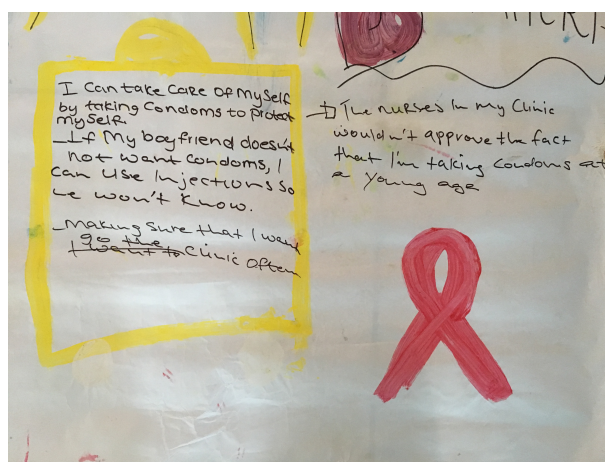 I Can take care of Myself
by taking Condoms to protect
myself.
- If My boyfriend doesn't
not want condoms, I
can use Injections so
he won't know.
- Making sure that I want
go the
I want to Clinic Often
The nurses In my Clinic
wouldn't approve the fact
that I'm taking condoms at
a young age